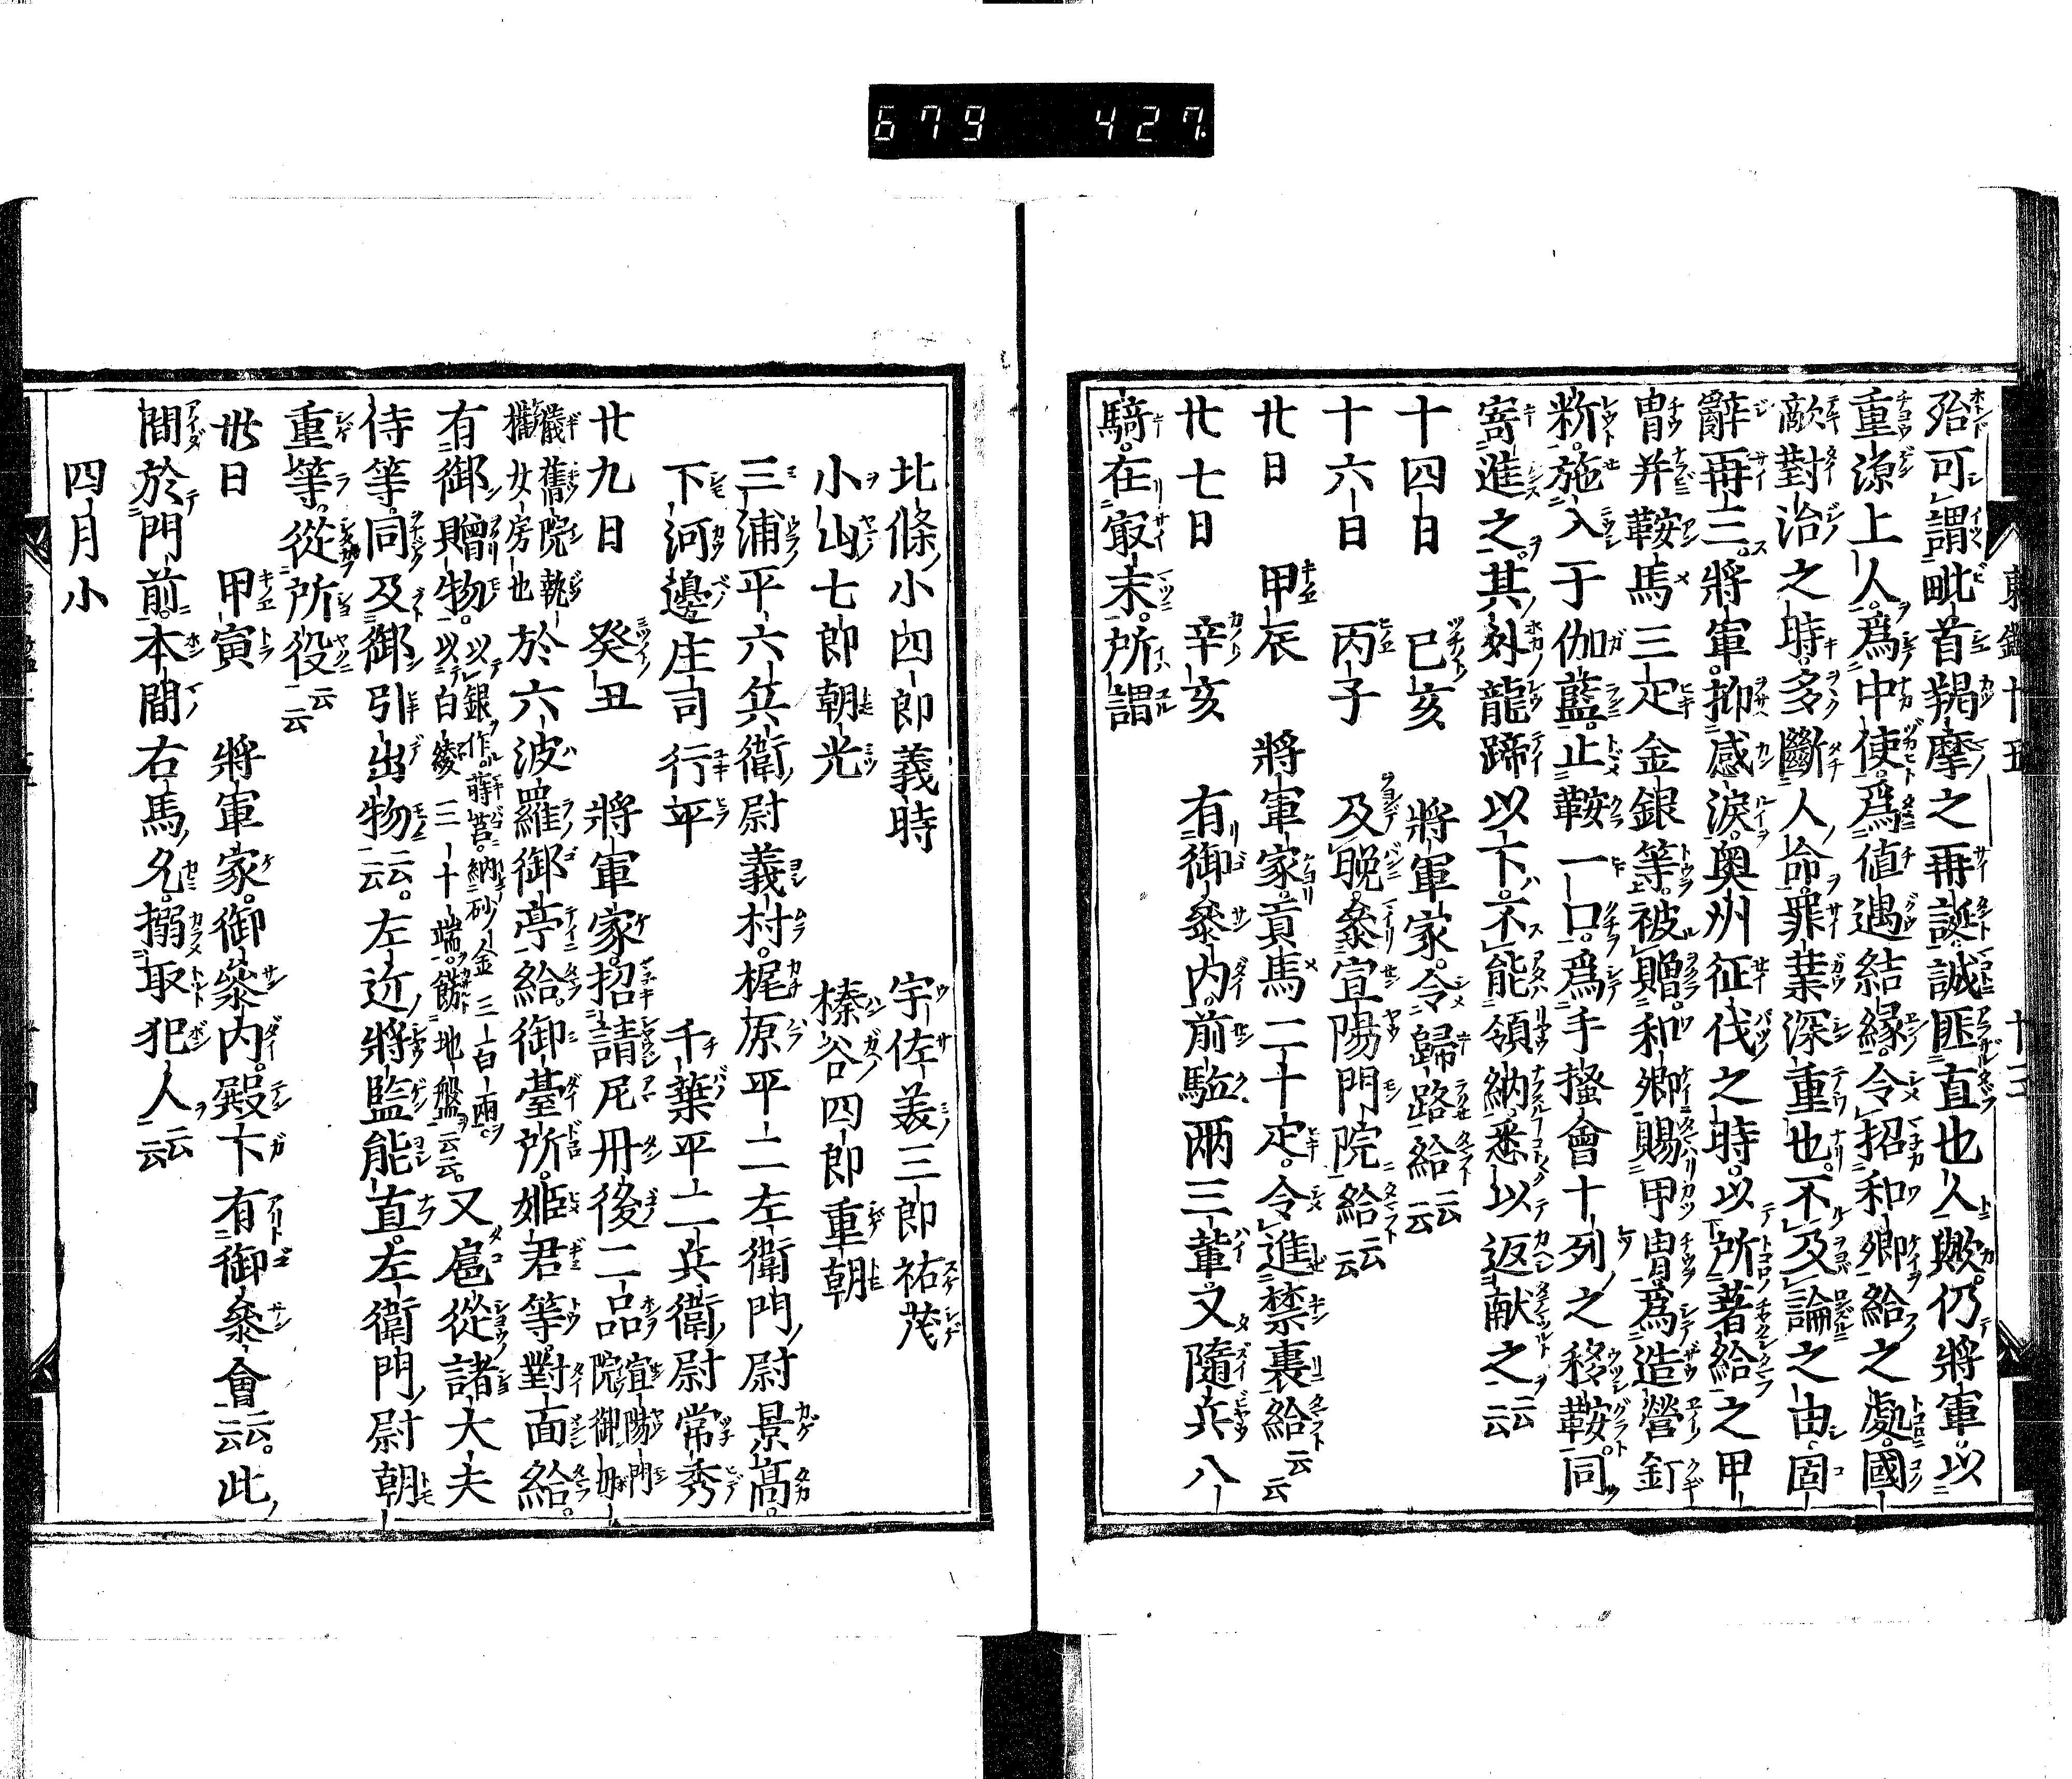 679 427
殆可謂毗首羯摩之再誕誠匪直也人歟。仍將軍。以
重源上人。爲中使。爲値遇結緣。令招和卿給之處。國
敵對治之時。多斷人命。罪業深重也。不及論之由。固
辭再三。將軍。抑感淚。奥州征伐之時。以所著給之甲
冑并鞍馬三疋金銀等。被贈。和卿賜甲冑爲造營釘
料。施入于伽藍。止鞍一口。爲手搔會十列之移鞍。同
寄進之。其外龍蹄以下。不能領納。悉以返献之云云
十四日 己亥 將軍家。令歸路給云云
十六日 丙子 及晩。參宣陽門院給云云
廿日 甲辰 將軍家。貢馬二十疋。令進禁裏給云云
廿七日 辛亥 有御參内。前駈兩三輩。又隨兵八
騎。在㝡末。所謂
北條小四郎義時 宇佐美三郎祐茂
小山七郎朝光 榛谷四郎重朝
三浦平六兵衛尉義村。梶原平二左衛門尉景髙。
下河邊庄司行平 千葉平二兵衛尉常秀
廿九日 癸丑 將軍家。招請尼丹後二品宣陽門院御母
儀舊院執權女房也於六波羅御亭給。御臺所。姫君等。對面給。
有御贈物。以銀作蒔筥。納砂金三百兩。以白綾三十端。餝地盤云云。又扈從諸大夫
侍等。同及御引出物云云。左近將監能直。左衛門尉朝
重等。從所役云云
卅日 甲寅 將軍家。御參内。殿下有御參會云云。此
間於門前。本間右馬允。搦取犯人云云
四月小